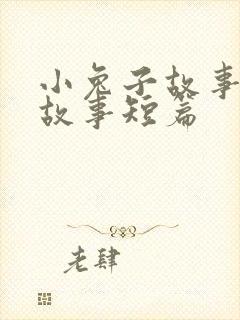 小兔子故事
故事短篇
老肆